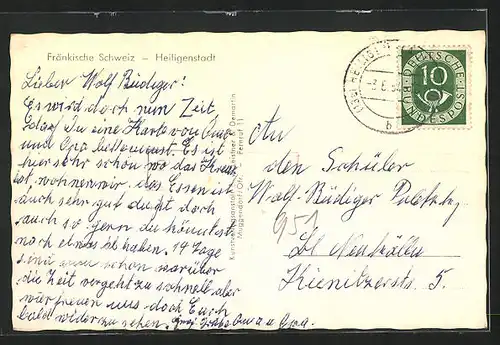 Fränkische Schweiz – Heiligenstadt
Lieber Wolf Rüdiger!
Es wird doch nun Zeit
daß Du eine Karte von Oma
und Opa bekommst. Es ist
hier sehr schön, wo das Kreuz
ist, wohnen wir, das Essen ist
auch sehr gut du ißt doch
auch so gern du könntest
noch etwas ab haben. 14 Tage
sind nun schon vorüber
die Zeit vergeht zu schnell aber
wir freuen uns doch Euch
bald wieder zu sehen. Oma u. Opa.
Muggendorf/Ofr. Fernruf 11
DEUTSCHE
BUNDESPOST
10
b
An
den Schüler
Wolf-Rüdiger
951
Bl Neukölln
Kienitzerstr 5.